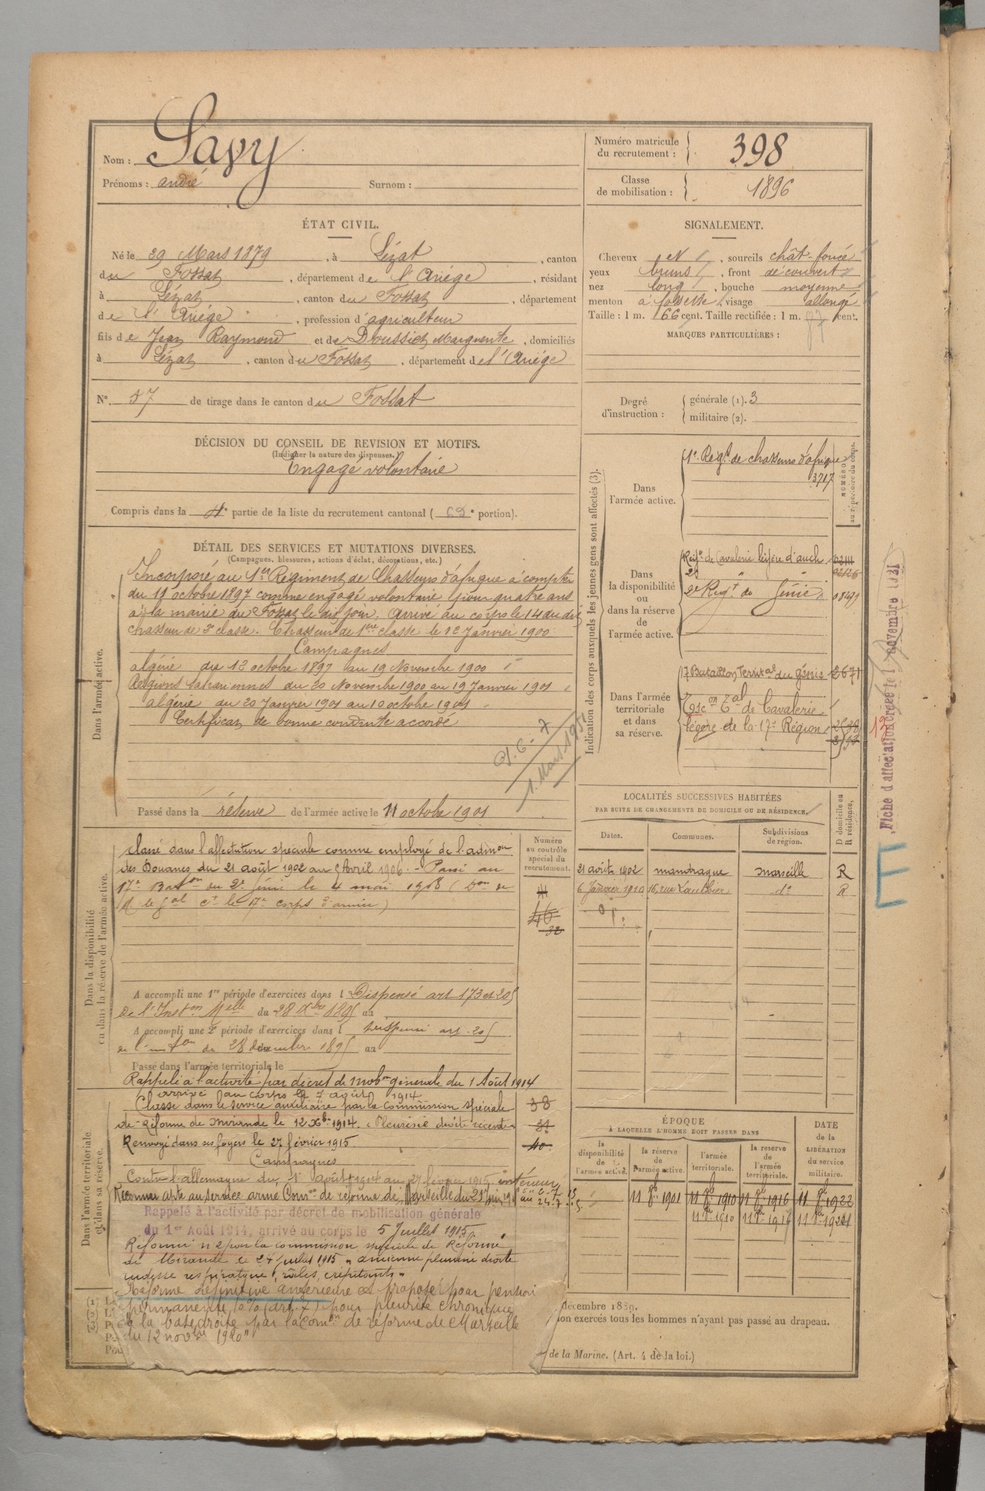 Nom : Savy
Prénoms : andré Surnom :
Numéro matricule du recrutement : 398
Classe de mobilisation : 1896
ÉTAT CIVIL.
Né le 29 Mars 1879, à Lézat, canton
du Fossat, département de l'Ariège, résidant
à Lézat, canton du Fossat, département
de l'Ariège, profession d'agriculteur
fils de Jean Raymond et de Doussiet Marguerite, domiciliés
à Lézat, canton du Fossat, département de l'Ariège
N° 57 de tirage dans le canton du Fossat
SIGNALEMENT.
Cheveux et sourcils chât-foncé
yeux bruns, front découvert
nez long, bouche moyenne
menton à fossette visage allongé
Taille : 1 m. 66 cent. Taille rectifiée : 1 m. 77 cent.
MARQUES PARTICULIÈRES :
Degré d'instruction : générale (1). 3
militaire (2).
DÉCISION DU CONSEIL DE REVISION ET MOTIFS.
(Indiquer la nature des dispenses.)
Engagé volontaire
Compris dans la 4e partie de la liste du recrutement cantonal ( e portion).
DÉTAIL DES SERVICES ET MUTATIONS DIVERSES.
(Campagnes, blessures, actions d'éclat, décorations, etc.)
Dans l'armée active.
Incorporé au 1er Régiment de Chasseurs d'afrique à compter
du 11 octobre 1897 comme engagé volontaire pour quatre ans
à la mairie du Fossat le dit jour. Arrivé au corps le 14 du dit
chasseur de 2e classe. Chasseur de 1ère classe le 12 Janvier 1900
Campagnes
algérie du 12 octobre 1897 au 19 Novembre 1900
Régions sahariennes du 20 Novembre 1900 au 19 Janvier 1901
algérie du 20 Janvier 1901 au 10 octobre 1901
Certificat de bonne conduite accordé
1 Mars 1951
Passé dans la réserve de l'armée active le 11 octobre 1901
Indication des corps auxquels les jeunes gens sont affectés (3).
NUMÉRO au répertoire du corps.
Dans l'armée active.
1er Régt de chasseurs d'afrique
3717
Dans la disponibilité ou dans la réserve de l'armée active.
Régt de Cavalerie légère d'auch
2e Régt de Génie 1541
Dans l'armée territoriale et dans sa réserve.
17 Bataillon Territal du génie 2671
Esc on Tal de Cavalerie
légère de la 17e Région
Fiche d'affectation créée le 1 novembre 1921
12
E
LOCALITÉS SUCCESSIVES HABITÉES
PAR SUITE DE CHANGEMENTS DE DOMICILE OU DE RÉSIDENCE.
Dates. Communes. Subdivisions de région. D domicile ou R résidence.
21 août 1902 mandraque marseille R
6 Janvier 1910 16 rue d° R
Dans la disponibilité ou dans la réserve de l'armée active.
Numéro au contrôle spécial du recrutement.
classé dans l'affectation spéciale comme employé de l'admon
des Douanes du 21 août 1902 au Avril 1906. Passé au
17e Baton du 2e génie le 4 mai 1908 (Don de
M le Gal Ct le 17e corps d'armée)
A accompli une 1re période d'exercices dans l Dispensé art 173 et 205
de l'Inston Melle du 28 Xbre 1895 au
A accompli une 2e période d'exercices dans l dispensé art. 205
de l' du 28 décembre 1895 au
Passé dans l'armée territoriale le
Dans l'armée territoriale et dans sa réserve.
Rappelé à l'activité par décret de mobon générale du 1 Août 1914
arrivé au corps le 7 août 1914
Classé dans le service auxiliaire par la Commission spéciale
de Réforme de mirande le 12 Xbre 1914. Pleurésie droite récente
Renvoyé dans ses foyers le 27 février 1915
Campagnes
Contre l'allemagne du 1 août 1914 au 27 février 1915 intérieur
Reconnu apte au service armé Comon de réforme de Marseille du 21 Juin 1915
Rappelé à l'activité par décret de mobilisation générale
du 1er Août 1914, arrivé au corps le 5 Juillet 1915
Réformé n° 2 par la commission spéciale de Réforme
de Mirande le 24 juillet 1915 "ancienne pleurésie droite
rudesse respiratoire, râles, crépitants"
Réforme définitive antérieure et proposé pour pension
permanente, 10% (art. 7) pour pleurite chronique
à la base droite par la Comon de réforme de Marseille
du 12 novbre 1920"
38
40
ÉPOQUE
À LAQUELLE L'HOMME DOIT PASSER DANS
la disponibilité de l'armée active. la réserve de l'armée active. l'armée territoriale. la réserve de l'armée territoriale.
DATE de la LIBÉRATION du service militaire.
11 8bre 1901 11 8bre 1910 11 8bre 1916 11 8bre 1922
11 8bre 1910 11 8bre 1916 11 8bre 1921
décembre 1889.
ion exercés tous les hommes n'ayant pas passé au drapeau.
de la Marine. (Art. 4 de la loi.)